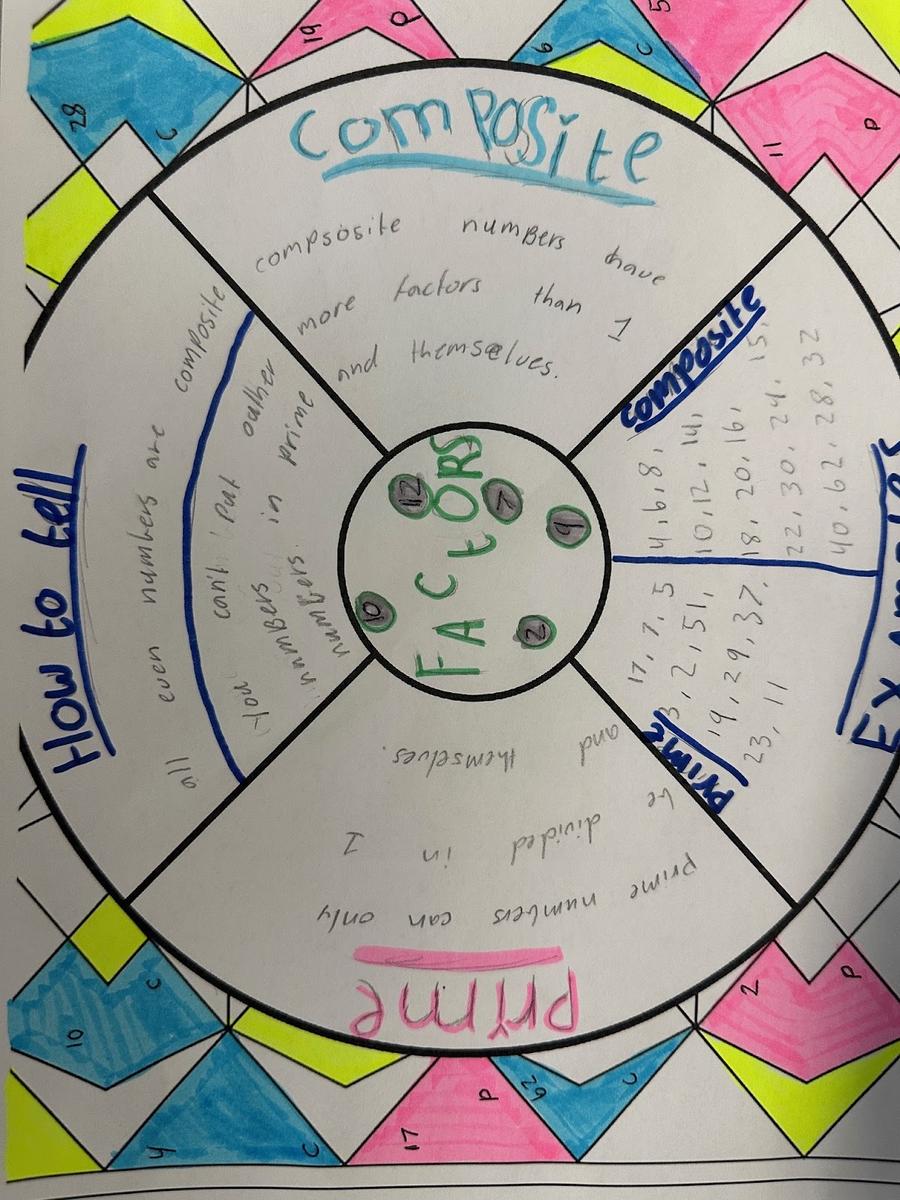 28
C
19
P
6
C
5
11
P
composite
compsosite numbers have
more factors than 1
and themselves.
How to tell
all even numbers are composite
You can't put oather
numbers in prime
numbers.
FActORS
12
7
9
10
2
composite
4, 6, 8,
10, 12, 14,
18, 20, 16, 15,
22, 30, 24,
40, 62, 28, 32
Prime
17, 7, 5
3, 2, 51,
19, 29, 37,
23, 11
Prime
prime numbers can only
be divided in 1
and themselves.
10
C
4
C
17
P
62
C
2
P